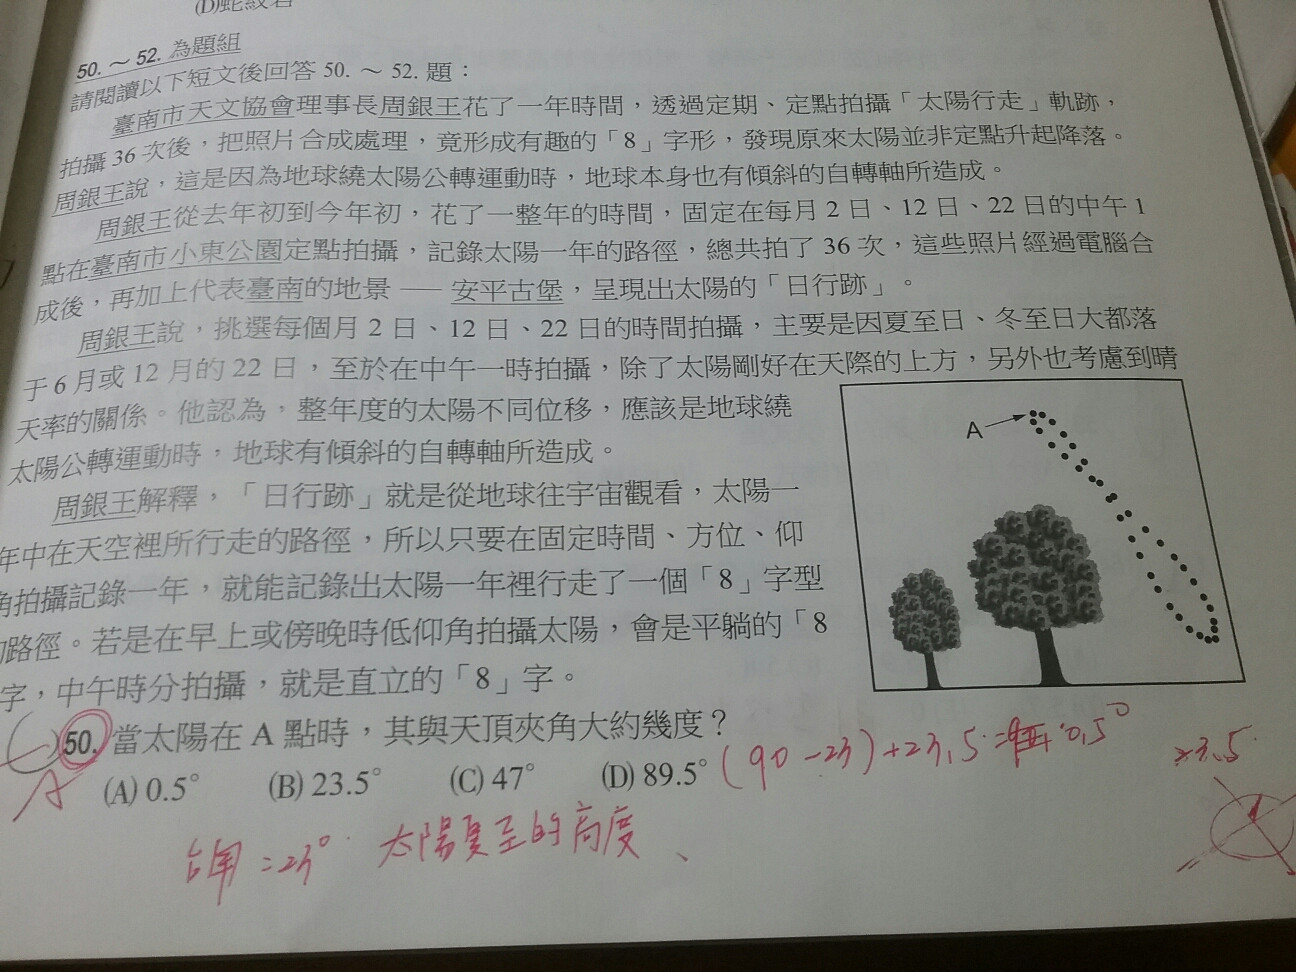 (D)蛇紋岩
50. ～ 52. 為題組
請閱讀以下短文後回答 50. ～ 52. 題：
臺南市天文協會理事長周銀王花了一年時間，透過定期、定點拍攝「太陽行走」軌跡，
拍攝 36 次後，把照片合成處理，竟形成有趣的「8」字形，發現原來太陽並非定點升起降落。
周銀王說，這是因為地球繞太陽公轉運動時，地球本身也有傾斜的自轉軸所造成。
周銀王從去年初到今年初，花了一整年的時間，固定在每月 2 日、12 日、22 日的中午 1
點在臺南市小東公園定點拍攝，記錄太陽一年的路徑，總共拍了 36 次，這些照片經過電腦合
成後，再加上代表臺南的地景 ── 安平古堡，呈現出太陽的「日行跡」。
周銀王說，挑選每個月 2 日、12 日、22 日的時間拍攝，主要是因夏至日、冬至日大都落
于 6 月或 12 月的 22 日，至於在中午一時拍攝，除了太陽剛好在天際的上方，另外也考慮到晴
天率的關係。他認為，整年度的太陽不同位移，應該是地球繞
太陽公轉運動時，地球有傾斜的自轉軸所造成。
周銀王解釋，「日行跡」就是從地球往宇宙觀看，太陽一
年中在天空裡所行走的路徑，所以只要在固定時間、方位、仰
角拍攝記錄一年，就能記錄出太陽一年裡行走了一個「8」字型
路徑。若是在早上或傍晚時低仰角拍攝太陽，會是平躺的「8
字，中午時分拍攝，就是直立的「8」字。
A
( )50. 當太陽在 A 點時，其與天頂夾角大約幾度？
(A) 0.5° (B) 23.5° (C) 47° (D) 89.5°
(90-23)+23.5= 0.5°
A
23.5
=23° 太陽夏至的高度、